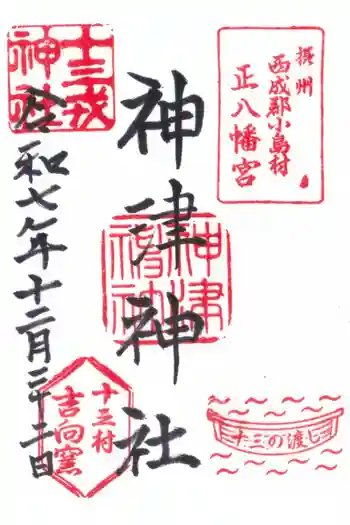 摂州
西成郡小島村
正八幡宮
神津神社
神津神社
十三戎
神社
令和七年十二月三十二日
十三村
吉向窯
十三の渡し